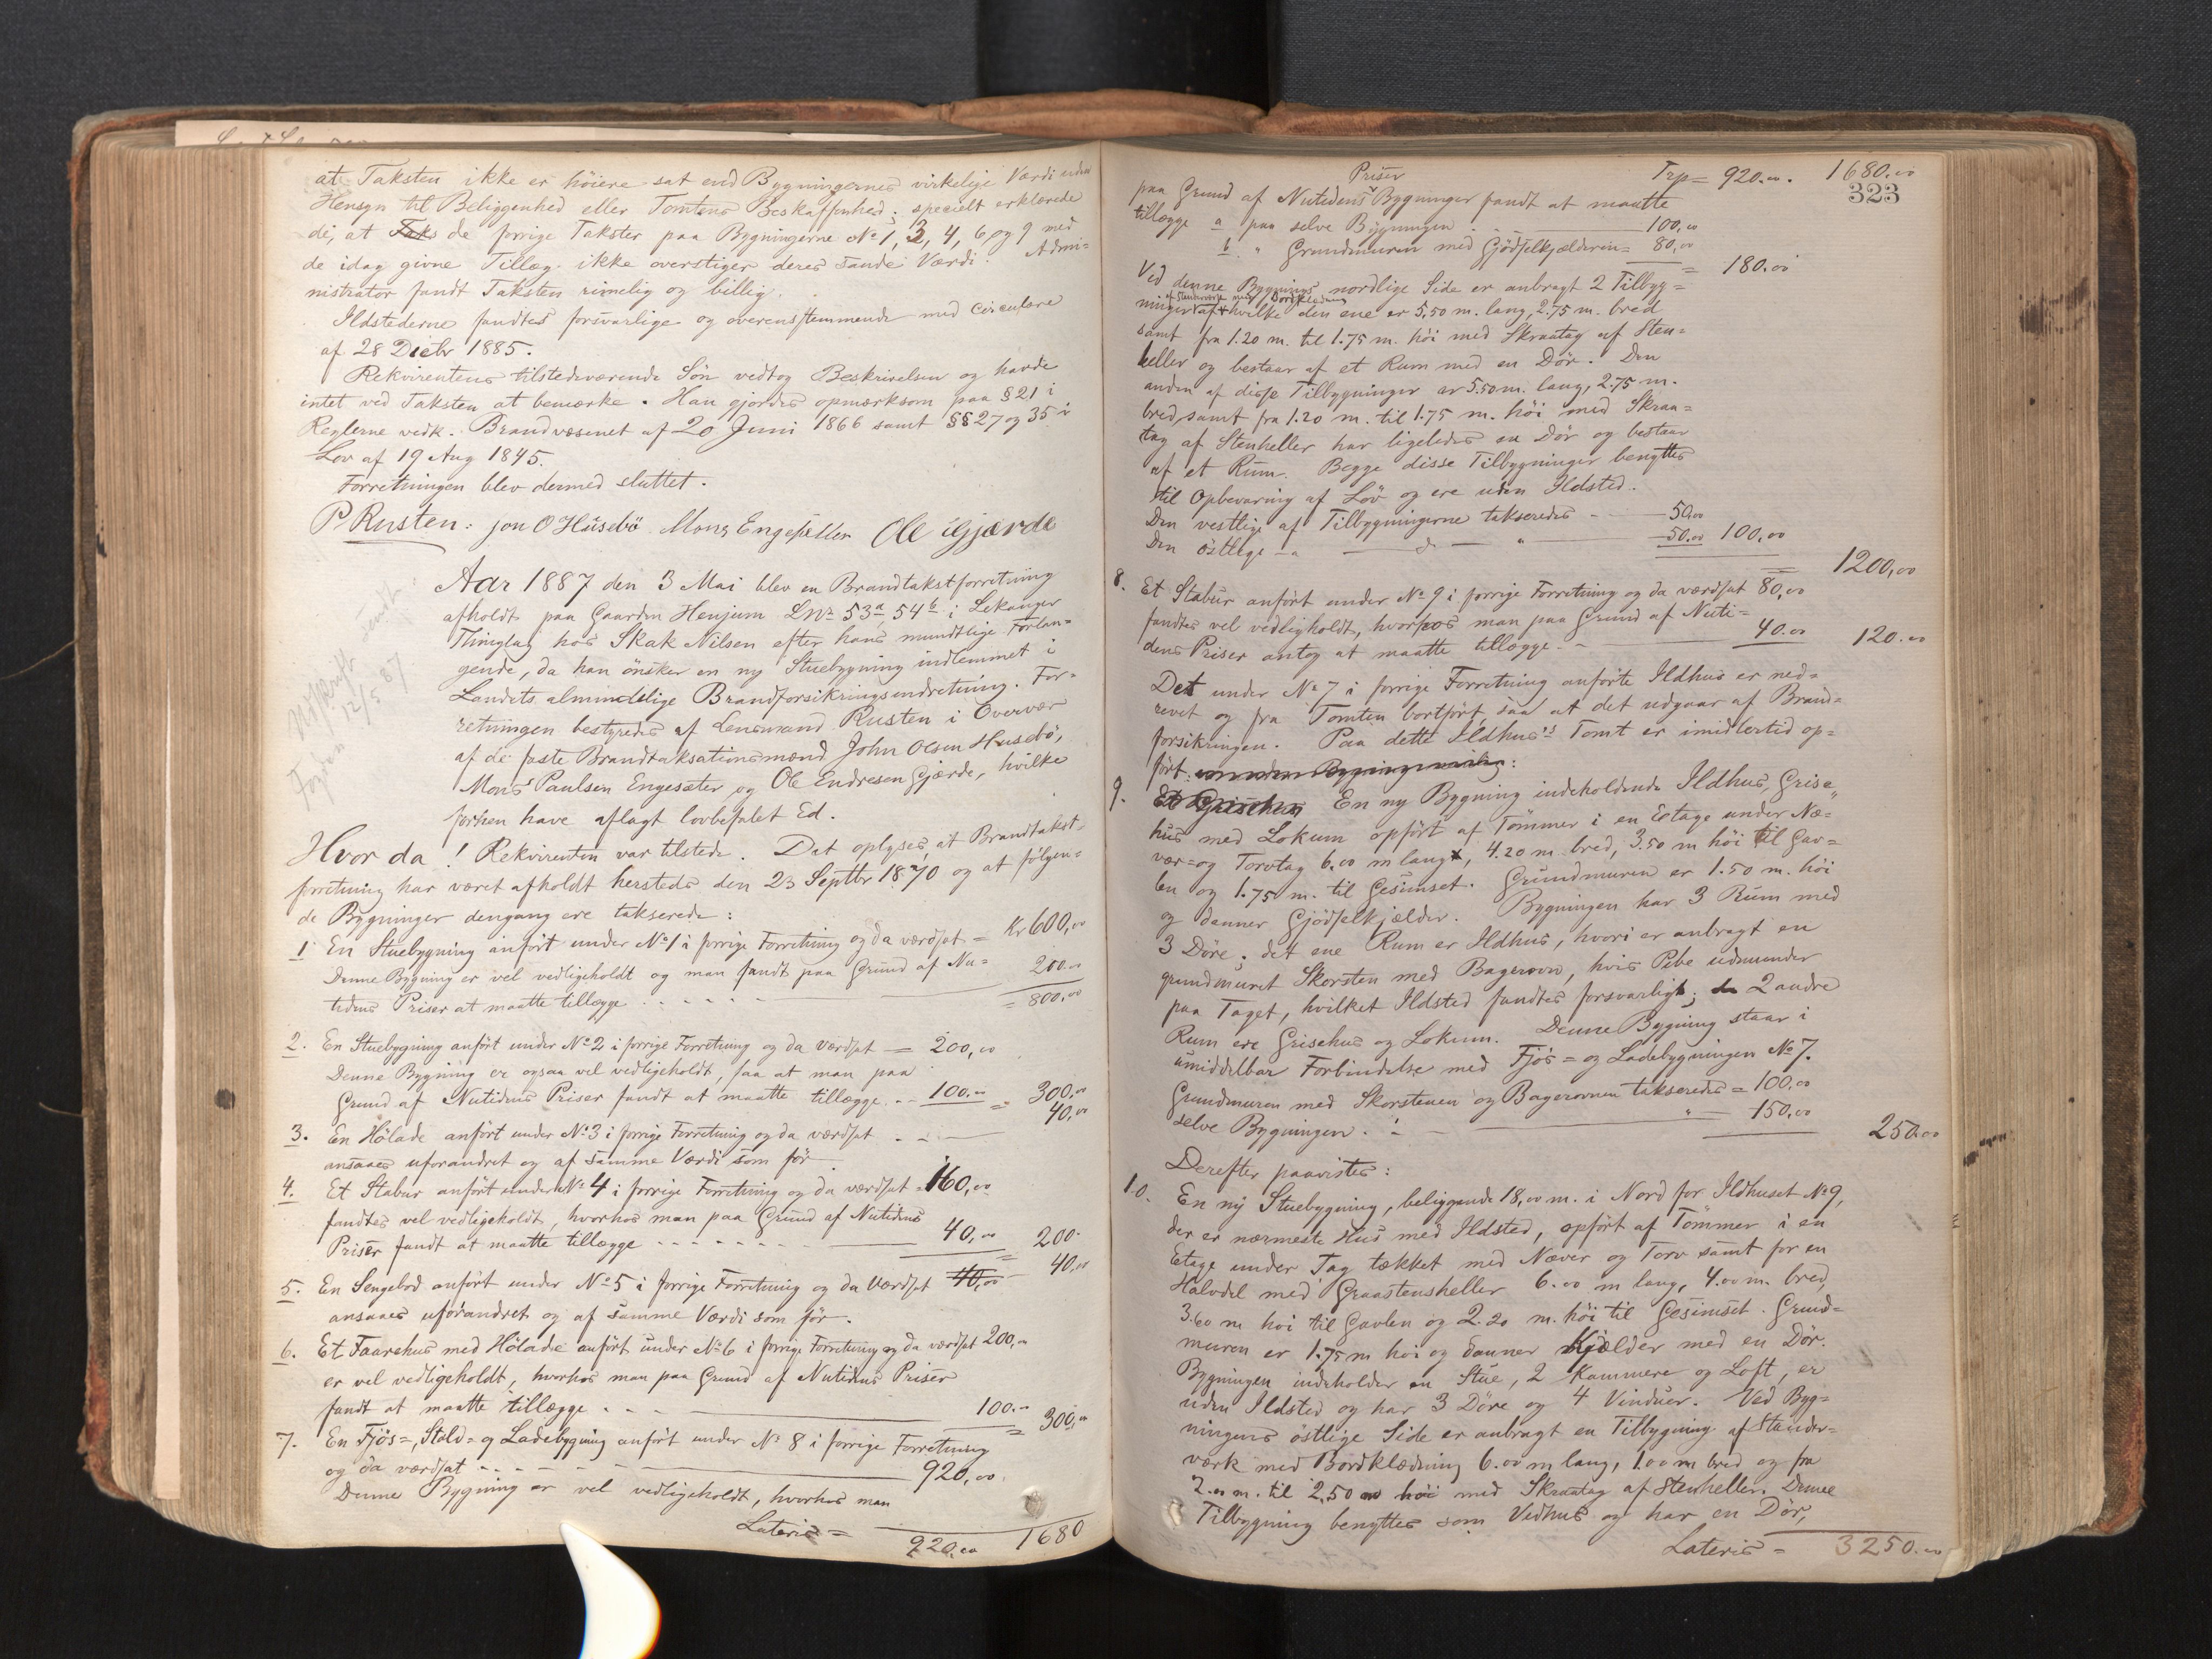 at Taksten ikke er höiere sat end Bygningernes virkelige Værdi uden
Hensyn til Beliggenhed eller Tomtens Beskaffenhed; specielt erklærede
de, at Taks de forrige Takster paa Bygningerne No 1, 3, 4, 6 og 9 med
de idag givne Tillæg ikke overstiger deres sande Værdi. Admi=
nistrator fandt Taksten rimelig og billig.
Ildstederne fandtes forsvarlige og overensstemmende med Circulære
af 28 Decbr 1885.
Rekvirentens tilstedeværende Sön vedtog Beskrivelsen og havde
intet ved Taksten at bemærke. Han gjordes opmærksom paa § 21 i
Reglerne vedk. Brandvæsenet af 20 Juni 1866 samt §§ 27 og 35 i
Lov af 19 Aug 1845.
Forretningen blev dermed sluttet.
P Rusten: Jon O Husebö Mons Engesæter Ole Gjærde
Udskrift sendt
Fogden 12/5 87
Aar 1887 den 3 Mai blev en Brandtakstforretning
afholdt paa Gaarden Henjum LNr 53a, 54b i Lekanger
Thinglag hos Skak Nilsen efter hans mundtlige Forlan=
gende, da han önsker en ny Stuebygning indlemmet i
Landets almindelige Brandforsikringsindretning. For=
retningen bestyredes af Lensmand Rusten i Overvær
af de faste Brandtaksationsmænd John Olsen Husebö,
Mons Paulsen Engesæter og Ole Endresen Gjærde, hvilke
forhen have aflagt lovbefalet Ed.
Hvor da! Rekvirenten var tilstede. Det oplyses, at Brandtakst=
forretning har været afholdt hersteds den 23 Septbr 1870 og at fölgen=
de Bygninger dengang ere takserede:
1 En Stuebygning anfört under No 1 i forrige Forretning og da værdsat = Kr 600,00
Denne Bygning er vel vedligeholdt og man fandt paa Grund af Nu=
tidens Priser at maatte tillægge - - - - - 200.00
= 800,00
2. En Stuebygning anfört under No 2 i forrige Forretning og da værdsat = 200,00
Denne Bygning er ogsaa vel vedligeholdt, saa at man paa
Grund af Nutidens Priser fandt at maatte tillægge - - 100.00 = 300.00
3. En Hölade anfört under No 3 i forrige Forretning og da værdsat - - 40,00
ansaaes uforandret og af samme Værdi som för
4. Et Stabur anfört under No 4 i forrige Forretning og da værdsat = 160,00
fandtes vel vedligeholdt, hvorhos man paa Grund af Nutidens
Priser fandt at maatte tillægge - - - - - - 40,00 = 200.
5. En Sengebod anfört under No 5 i forrige Forretning og da værdsat 40,00 40,00
ansaaes uforandret og af samme Værdi som för.
6. Et Faarehus med Hölade anfört under No 6 i forrige Forretning og da værdsat 200,00
er vel vedligeholdt, hvorhos man paa Grund af Nutidens Priser
fandt at maatte tillægge - - - 100.00 = 300,00
7. En Fjös=, Stald= og Ladebygning anfört under No 8 i forrige Forretning
og da værdsat - - - - - 920,00
Denne Bygning er vel vedligeholdt, hvorhos man
Lateris = 920,00 1680
Trp = 920.00. 1680.00
323
Priser
paa Grund af Nutidens Bygninger fandt at maatte
tillægge a paa selve Bygningen - - 100,00
b. " Grundmuren med Gjödselkjælderen = 80,00
= 180.00
Ved denne Bygnings nordlige Side er anbragt 2 Tilbyg=
af Stenderværk med Bordklædning
ninger af hvilke den ene er 5,50 m. lang, 2.75 m. bred
samt fra 1.20 m. til 1.75 m. höi med Skraatag af Sten=
heller og bestaar af et Rum med en Dör. Den
anden af disse Tilbygninger er 5.50 m. lang, 2.75 m.
bred samt fra 1.20 m. til 1.75 m. höi med Skraa=
tag af Stenheller har ligeledes en Dör og bestaar
af et Rum. Begge disse Tilbygninger benyttes
til Opbevaring af Löv og ere uden Ildsted.
Den vestlige af Tilbygningerne takseredes - 50,00
Den östlige - " - d - " - 50.00 100,00
= 1200,00
8. Et Stabur anfört under No 9 i forrige Forretning og da værdsat 80,00
fandtes vel vedligholdt, hvorhos man paa Grund af Nuti=
dens Priser antog at maatte tillægge - - 40.00 120.00
Det under No 7 i forrige Forretning anförte Ildhus er ned=
revet og fra Tomten bortfört, saa at det udgaar af Brand=
forsikringen. Paa dette Ildhus's Tomt er imidlertid op=
fört:
9. Et Grisehus En ny Bygning indeholdende Ildhus, Grise„
hus med Lokum opfört af Tömmer i en Etage under Næ=
ver= og Torvtag 6.00 m lang, 4.20 m bred, 3.50 m höi til Gav=
len og 1.75 m. til Gesimset. Grundmuren er 1.50 m. höi
og danner Gjödselkjælder. Bygningen har 3 Rum med
3 Döre; det ene Rum er Ildhus, hvori er anbragt en
grundmuret Skorsten med Bagerovn, hvis Pibe udmunder
paa Taget, hvilket Ildsted fandtes forsvarligt; de 2 andre
Rum ere Grisehus og Lokum. Denne Bygning staar i
umiddelbar Forbindelse med Fjös= og Ladebygningen No 7.
Grundmuren med Skorstenen og Bagerovnen takseredes = 100,00
selve Bygningen - - " - 150,00 250.00
Derefter paavistes:
10. En ny Stuebygning, beliggende 18,00 m. i Nord for Ildhuset No 9,
der er nærmeste Hus med Ildsted, opfört af Tömmer i en
Etage under Tag tækket med Næver og Torv samt for en
Halvdel med Graastensheller 6.00 m lang, 4.00 m. bred,
3.60 m höi til Gavlen og 2.20 m. höi til Gesimset. Grund=
muren er 1.75 m höi og danner Kjælder med en Dör.
Bygningen indeholder en Stue, 2 Kammere og Loft, er
uden Ildsted og har 3 Döre og 4 Vinduer. Ved Byg=
ningens östlige Side er anbragt en Tilbygning af Stender=
værk med Bordklædning 6.00 m lang, 1.00 m bred og fra
2.00 m. til 2,50 m höi med Skraatag af Stenheller. Denne
Tilbygning benyttes som Vedhus og har en Dör,
Lateris = 3250.00